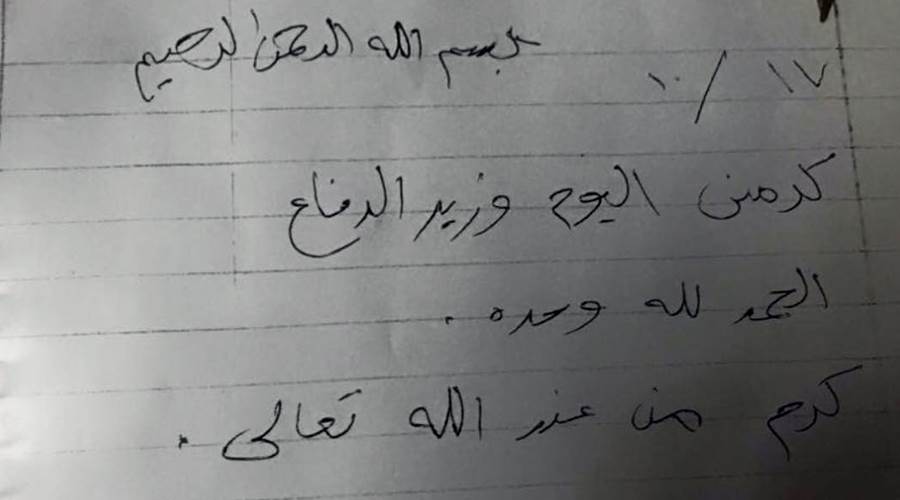 بسم الله الرحمن الرحيم
١٧ / ١٠
كرمني اليوم وزير الدفاع
الحمد لله وحده .
كرم من عند الله تعالى .